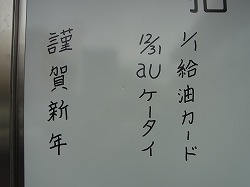 1/1 給油カード
12/31 au ケータイ
謹賀新年